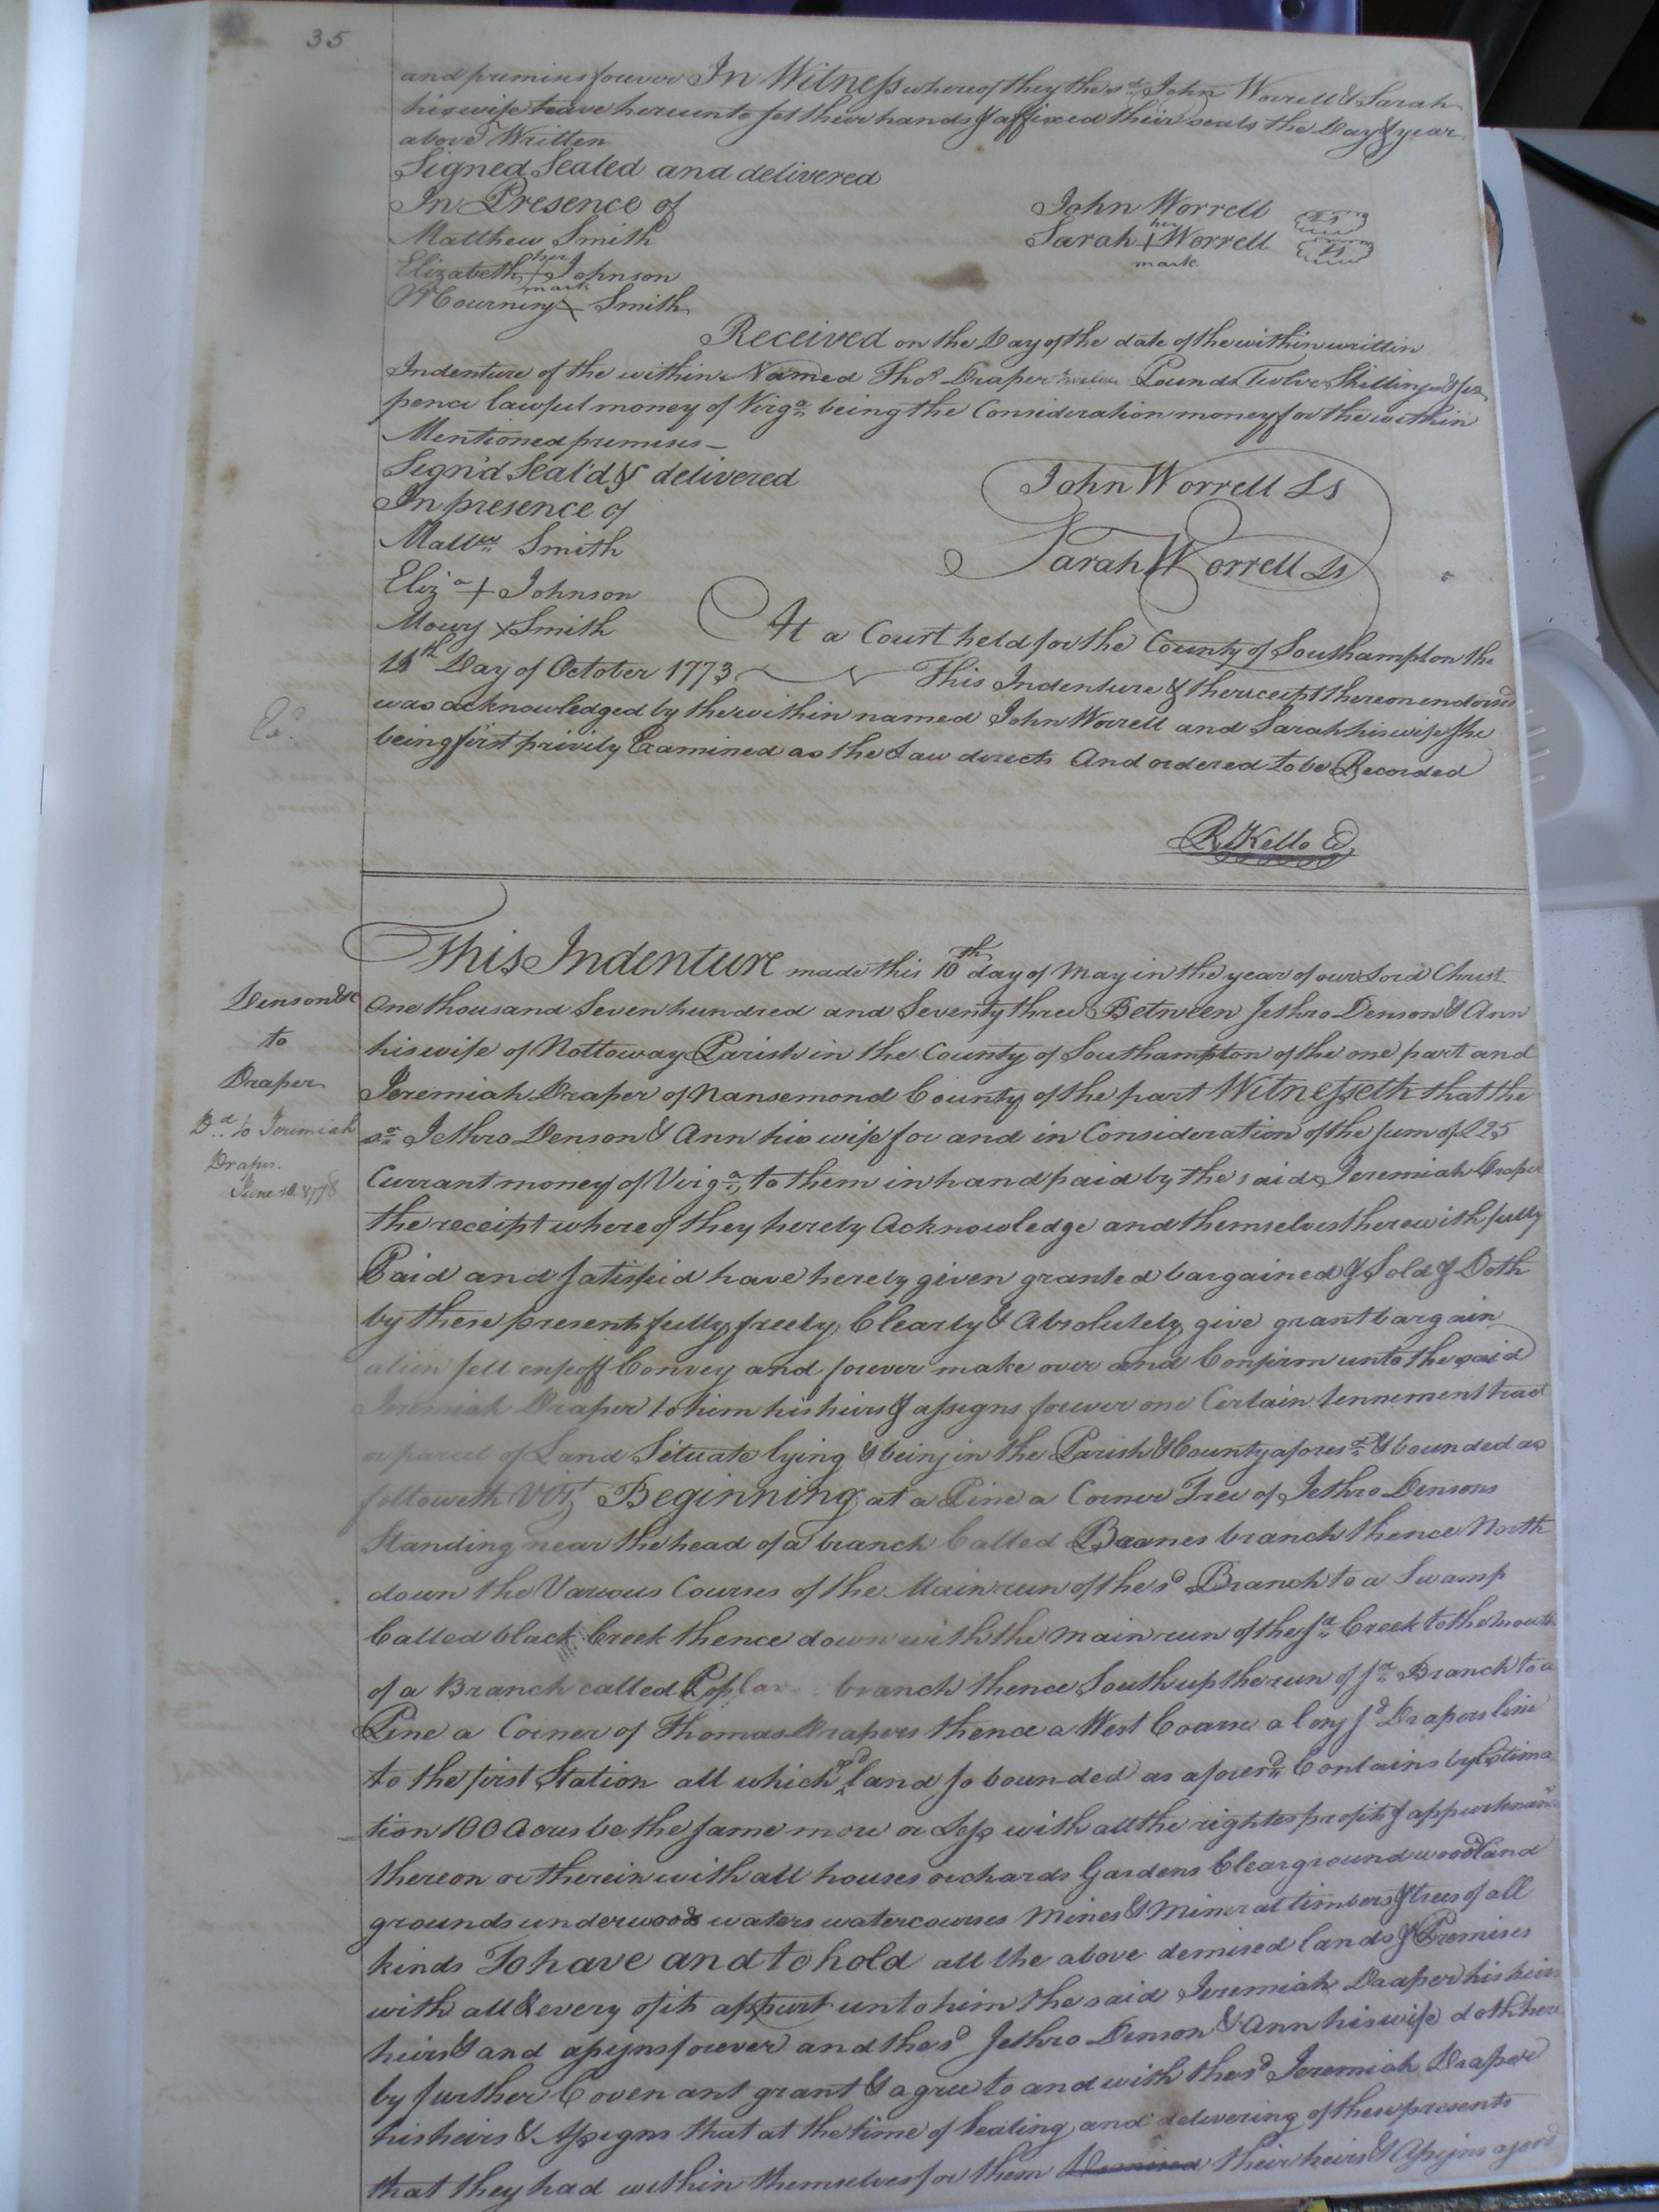 35
and premises forever In Witness whereof they the sd. John Worrell & Sarah
his wife have hereunto set their hands & affixed their seals the Day & year
above Written
Signed Sealed and delivered
In Presence of
John Worrell LS
Matthew Smith
her
Sarah + Worrell LS
mark
her
Elizabeth + Johnson
mark
Mourning × Smith
Received on the Day of the date of the within written
Indenture of the within Named Thos Draper twelve Pounds Twelve Shillings & six
pence lawful money of Virga. being the Consideration money for the within
Mentioned premises —
Sign'd Seal'd & delivered
In presence of
John Worrell Ls
Mattw. Smith
Sarah Worrell Ls
Eliza + Johnson
Mourg × Smith
At a Court held for the County of Southampton the
Day of October 1773 This Indenture & the receipt thereon endorsed
was acknowledged by the within named John Worrell and Sarah his wife she
Exd.
being first privily Examined as the Law directs And ordered to be Recorded
R Kello
This Indenture made this 10th day of May in the year of our Lord Christ
Denson &c
One thousand Seven hundred and Seventy three Between Jethro Denson & Ann
to
his wife of Nottoway Parish in the County of Southampton of the one part and
Draper
Jeremiah Draper of Nansemond County of the part Witnesseth that the
Dd. to Jeremiah
sd. Jethro Denson & Ann his wife for and in Consideration of the sum of £25
Draper.
June 1778
Currant money of Virga. to them in hand paid by the said Jeremiah Draper
the receipt whereof they hereby Acknowledge and themselves therewith fully
Paid and satisfied have hereby given granted bargained & Sold & Doth
by these presents fully, freely, Clearly & Absolutely give grant bargain
alien sell enfeoff Convey and forever make over and Confirm unto the said
Jeremiah Draper to him his heirs & assigns forever one Certain tennement tract
or parcel of Land Situate lying & being in the Parish & County aforesd. & bounded as
followeth Vizt Beginning at a Pine a Corner Tree of Jethro Densons
Standing near the head of a branch Called Barnes branch thence North
down the Various Courses of the Main run of the sd Branch to a Swamp
Called black Creek thence down with the main run of the sd. Creek to the mouth
of a Branch called Poplar branch thence South up the run of sd. Branch to a
Pine a Corner of Thomas Drapers thence a West Coarse along sd Drapers line
to the first Station all which sd land so bounded as aforesd. Contains by Estima
tion 100 Acres be the same more or Less with all the rights profits & appurtenance
thereon or therein with all houses orchards Gardens Clearground woodland
grounds underwoods waters watercourses Mines & Mineral timbers & trees of all
kinds To have and to hold all the above demised lands & Premises
with all & every of its appurt unto him the said Jeremiah Draper his heirs
heirs & and assigns forever and the sd Jethro Denson & Ann his wife doth here
by further Covenant grant & agree to and with the sd Jeremiah Draper
his heirs & Assigns that at the time of Sealing and delivering of these presents
that they had within themselves for them their heirs & Assigns a good